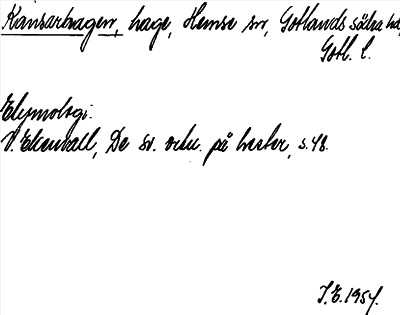 Kansarhagen, hage, Hemse sn, Gotlands södra hd,
Gotl. l.
Etymologi.
V. Ekenvall, De sv. ortn. på hester, s. 48.
I. E. 1954.